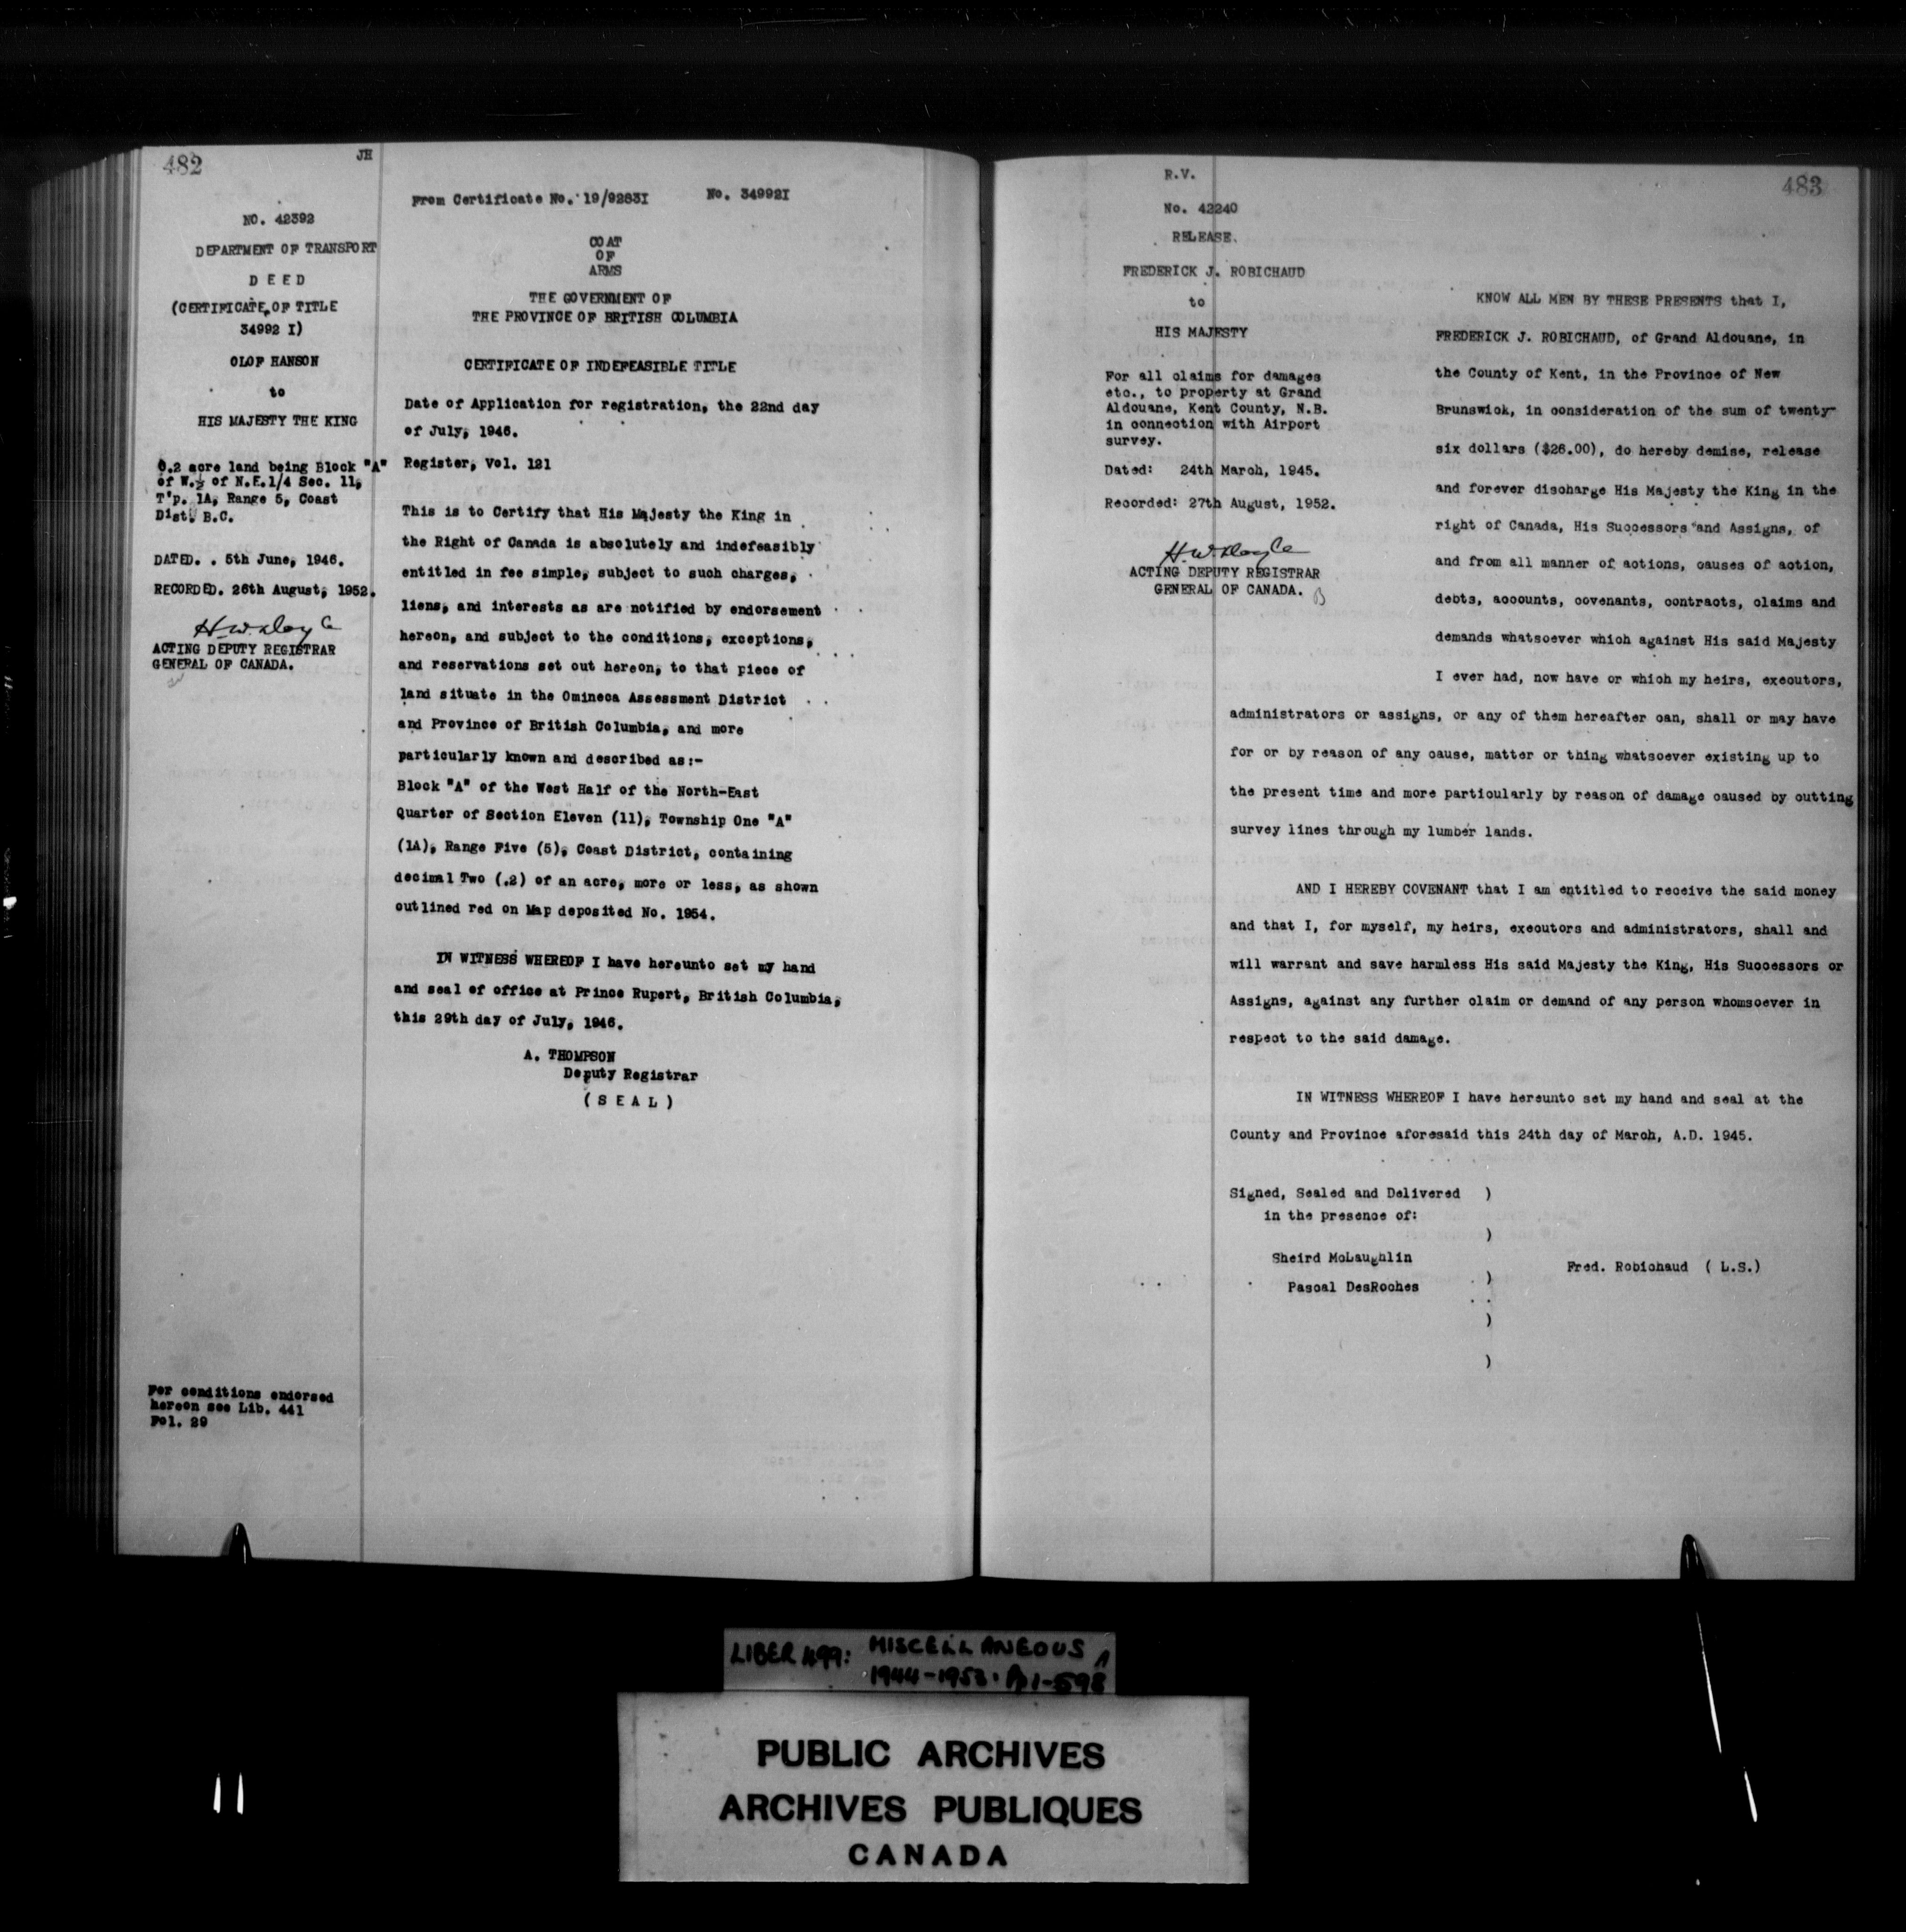 482
JH
NO. 42392
DEPARTMENT OF TRANSPORT
D E E D
(CERTIFICATE OF TITLE
34992 I)
OLOF HANSON
to
HIS MAJESTY THE KING
0.2 acre land being Block "A"
of W.½ of N.E.1/4 Sec. 11,
T'p. 1A, Range 5, Coast
Dist. B.C.
DATED. . 5th June, 1946.
RECORDED. 26th August, 1952.
H.W. Doyle
ACTING DEPUTY REGISTRAR
GENERAL OF CANADA.
For conditions endorsed
hereon see Lib. 441
Fol. 29
From Certificate No. 19/9283I No. 34992I
COAT
OF
ARMS
THE GOVERNMENT OF
THE PROVINCE OF BRITISH COLUMBIA
CERTIFICATE OF INDEFEASIBLE TITLE
Date of Application for registration, the 22nd day
of July, 1946.
Register, Vol. 121
This is to Certify that His Majesty the King in
the Right of Canada is absolutely and indefeasibly
entitled in fee simple, subject to such charges,
liens, and interests as are notified by endorsement
hereon, and subject to the conditions, exceptions,
and reservations set out hereon, to that piece of
land situate in the Omineca Assessment District
and Province of British Columbia, and more
particularly known and described as:-
Block "A" of the West Half of the North-East
Quarter of Section Eleven (11), Township One "A"
(1A), Range Five (5), Coast District, containing
decimal Two (.2) of an acre, more or less, as shown
outlined red on Map deposited No. 1954.
IN WITNESS WHEREOF I have hereunto set my hand
and seal of office at Prince Rupert, British Columbia,
this 29th day of July, 1946.
A. THOMPSON
Deputy Registrar
( S E A L )
483
R.V.
No. 42240
RELEASE.
FREDERICK J. ROBICHAUD
to
HIS MAJESTY
For all claims for damages
etc., to property at Grand
Aldouane, Kent County, N.B.
in connection with Airport
survey.
Dated: 24th March, 1945.
Recorded: 27th August, 1952.
H.W. Doyle
ACTING DEPUTY REGISTRAR
GENERAL OF CANADA.
KNOW ALL MEN BY THESE PRESENTS that I,
FREDERICK J. ROBICHAUD, of Grand Aldouane, in
the County of Kent, in the Province of New
Brunswick, in consideration of the sum of twenty-
six dollars ($26.00), do hereby demise, release
and forever discharge His Majesty the King in the
right of Canada, His Successors and Assigns, of
and from all manner of actions, causes of action,
debts, accounts, covenants, contracts, claims and
demands whatsoever which against His said Majesty
I ever had, now have or which my heirs, executors,
administrators or assigns, or any of them hereafter can, shall or may have
for or by reason of any cause, matter or thing whatsoever existing up to
the present time and more particularly by reason of damage caused by cutting
survey lines through my lumber lands.
AND I HEREBY COVENANT that I am entitled to receive the said money
and that I, for myself, my heirs, executors and administrators, shall and
will warrant and save harmless His said Majesty the King, His Successors or
Assigns, against any further claim or demand of any person whomsoever in
respect to the said damage.
IN WITNESS WHEREOF I have hereunto set my hand and seal at the
County and Province aforesaid this 24th day of March, A.D. 1945.
Signed, Sealed and Delivered )
in the presence of:
)
Sheird McLaughlin
Fred. Robichaud ( L.S.)
)
Pascal DesRoches
)
)
LIBER 499: MISCELLANEOUS
1944-1953. Pp 1-598
PUBLIC ARCHIVES
ARCHIVES PUBLIQUES
CANADA